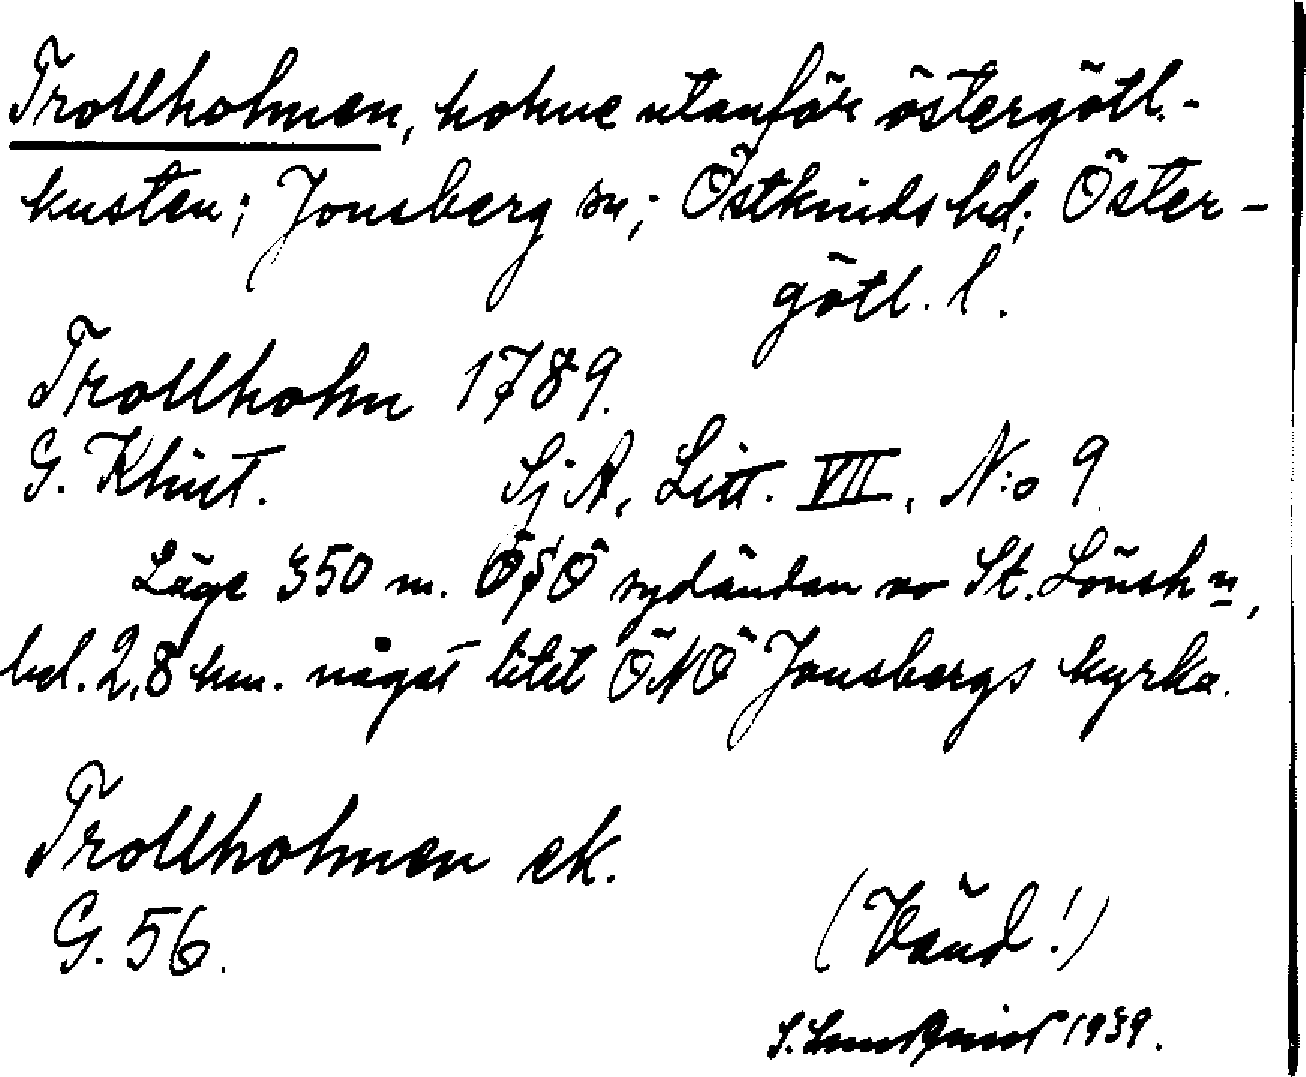 Trollholmen, holme utanför östergötl.-
kusten; Jonsberg sn; Östkinds hd; Öster-
götl. l.
Trollholm 1789.
G. Klint. SjA, Litt. VII, N:o 9
Läge 350 m. ÖSÖ sydändan av St. Lönshn,
bel. 2,8 km. något litet ÖNÖ Jonsbergs kyrka.
Trollholmen ek.
G. 56.
(Vänd!)
S. 1939.